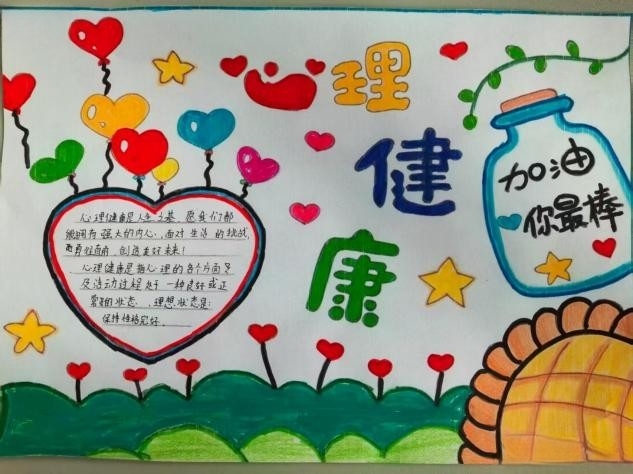 心理
健
康
加油
你最棒
心理健康是人生之基，愿我们都
能拥有强大的内心，面对生活的挑战，
勇往直前，创造美好未来！
心理健康是指心理的各个方面
及活动过程处于一种良好或正
常的状态、理想状态是：
保持性格完好、